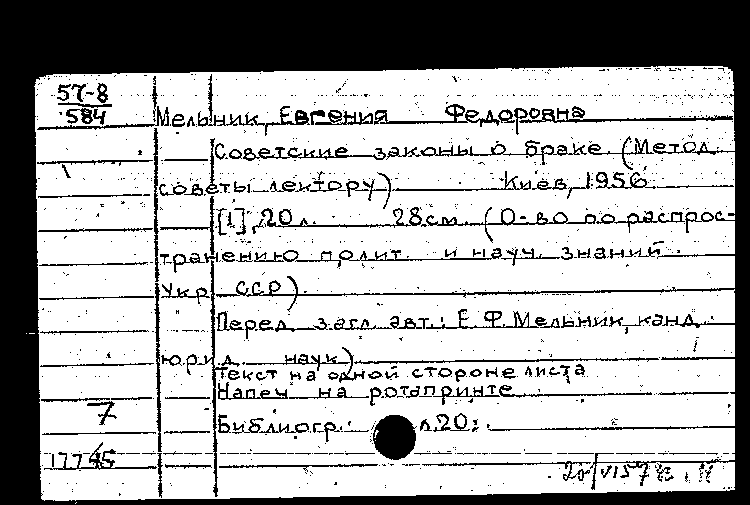 57-8
584
Мельник, Евгения Федоровна
Советские законы о браке. (Метод.
советы лектору) Киев, 1956.
[1], 20 л. 28 см. (О-во по распрос-
транению полит. и науч. знаний
Укр. ССР)
Перед. загл. авт.: Е. Ф. Мельник, канд.
юрид. наук)
Текст на одной стороне листа
Напеч. на ротапринте
Библиогр.: л. 20.
7
177
20/VI 57